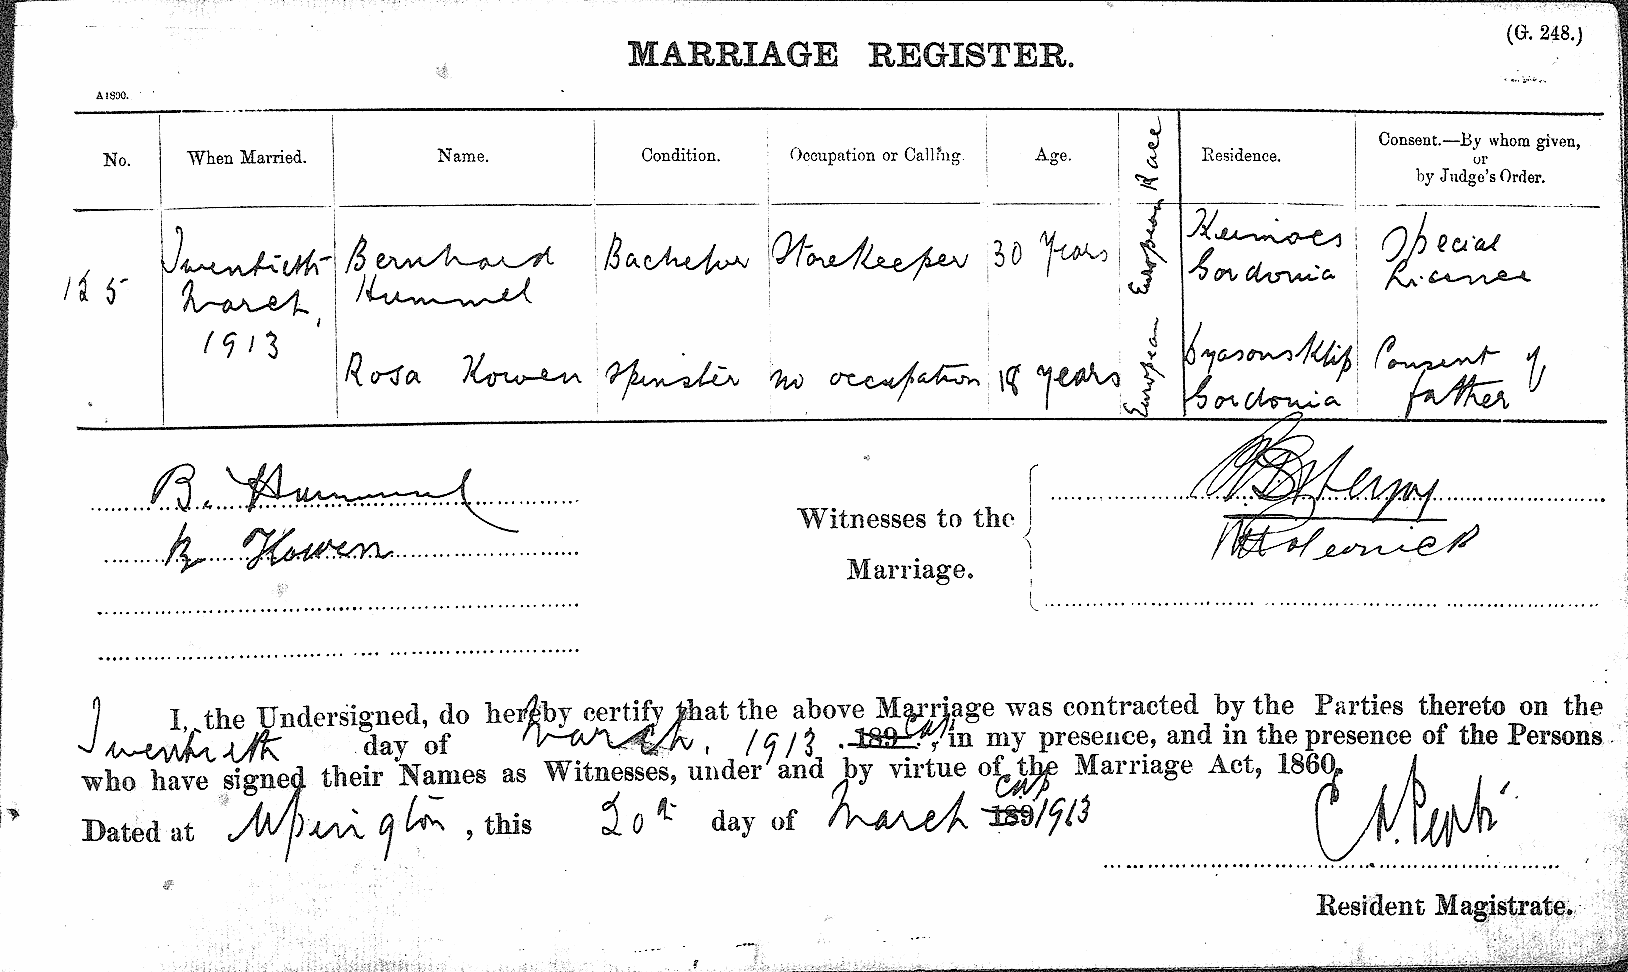 (G. 248.)
MARRIAGE REGISTER.
A1890.
No. When Married. Name. Condition. Occupation or Calling. Age. European Race Residence. Consent.—By whom given, or by Judge's Order.
125 Twentieth March, 1913
Bernhard Hummel Bachelor Storekeeper 30 Years European Keimoes Gordonia Special Licence
Rosa Kowen Spinster no occupation 18 years European Dyasonsklip Gordonia Consent of father
B. Hummel
R Kowen
Witnesses to the
Marriage.
I, the Undersigned, do hereby certify that the above Marriage was contracted by the Parties thereto on the
Twentieth day of March, 1913. 189 , in my presence, and in the presence of the Persons
who have signed their Names as Witnesses, under and by virtue of the Marriage Act, 1860.
Dated at Upington, this 20th day of March 189 1913
Resident Magistrate.